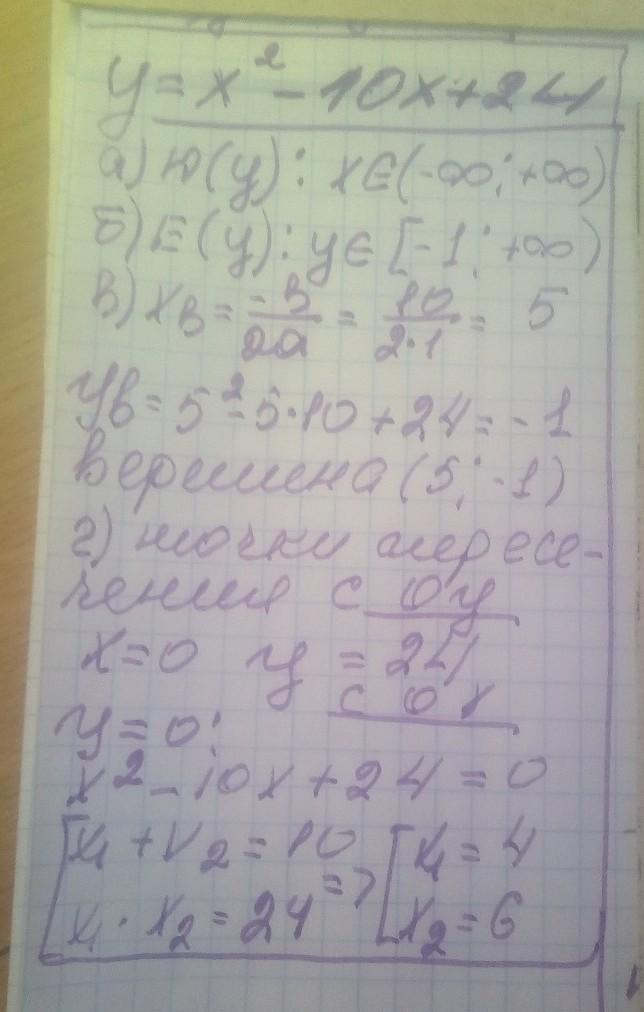 y = x² - 10x + 24
а) D(y): x∈(-∞; +∞)
б) E(y): y∈[-1; +∞)
в) xв = -в/2a = 10/2·1 = 5
yв = 5² - 5·10 + 24 = -1
вершина (5; -1)
г) точки пересе-
чения с oy
x = 0 y = 24
с ox
y = 0:
x² - 10x + 24 = 0
[x₁ + x₂ = 10 [x₁ = 4
x₁ · x₂ = 24 => x₂ = 6